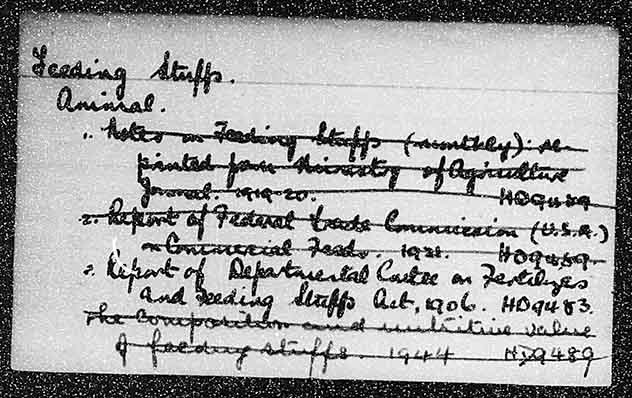 Feeding Stuffs.
Animal.
1. Notes on Feeding Stuffs (monthly): re-
printed from Ministry of Agriculture
Journal. 1919-20. HD9489
2. Report of Federal Trade Commission (U.S.A.)
on Commercial Feeds. 1921. HD9489.
3. Report of Departmental Cmtee on Fertilizers
and Feeding Stuffs Act, 1906. HD9483.
The composition and nutritive value
of feeding stuffs. 1944 HD9489